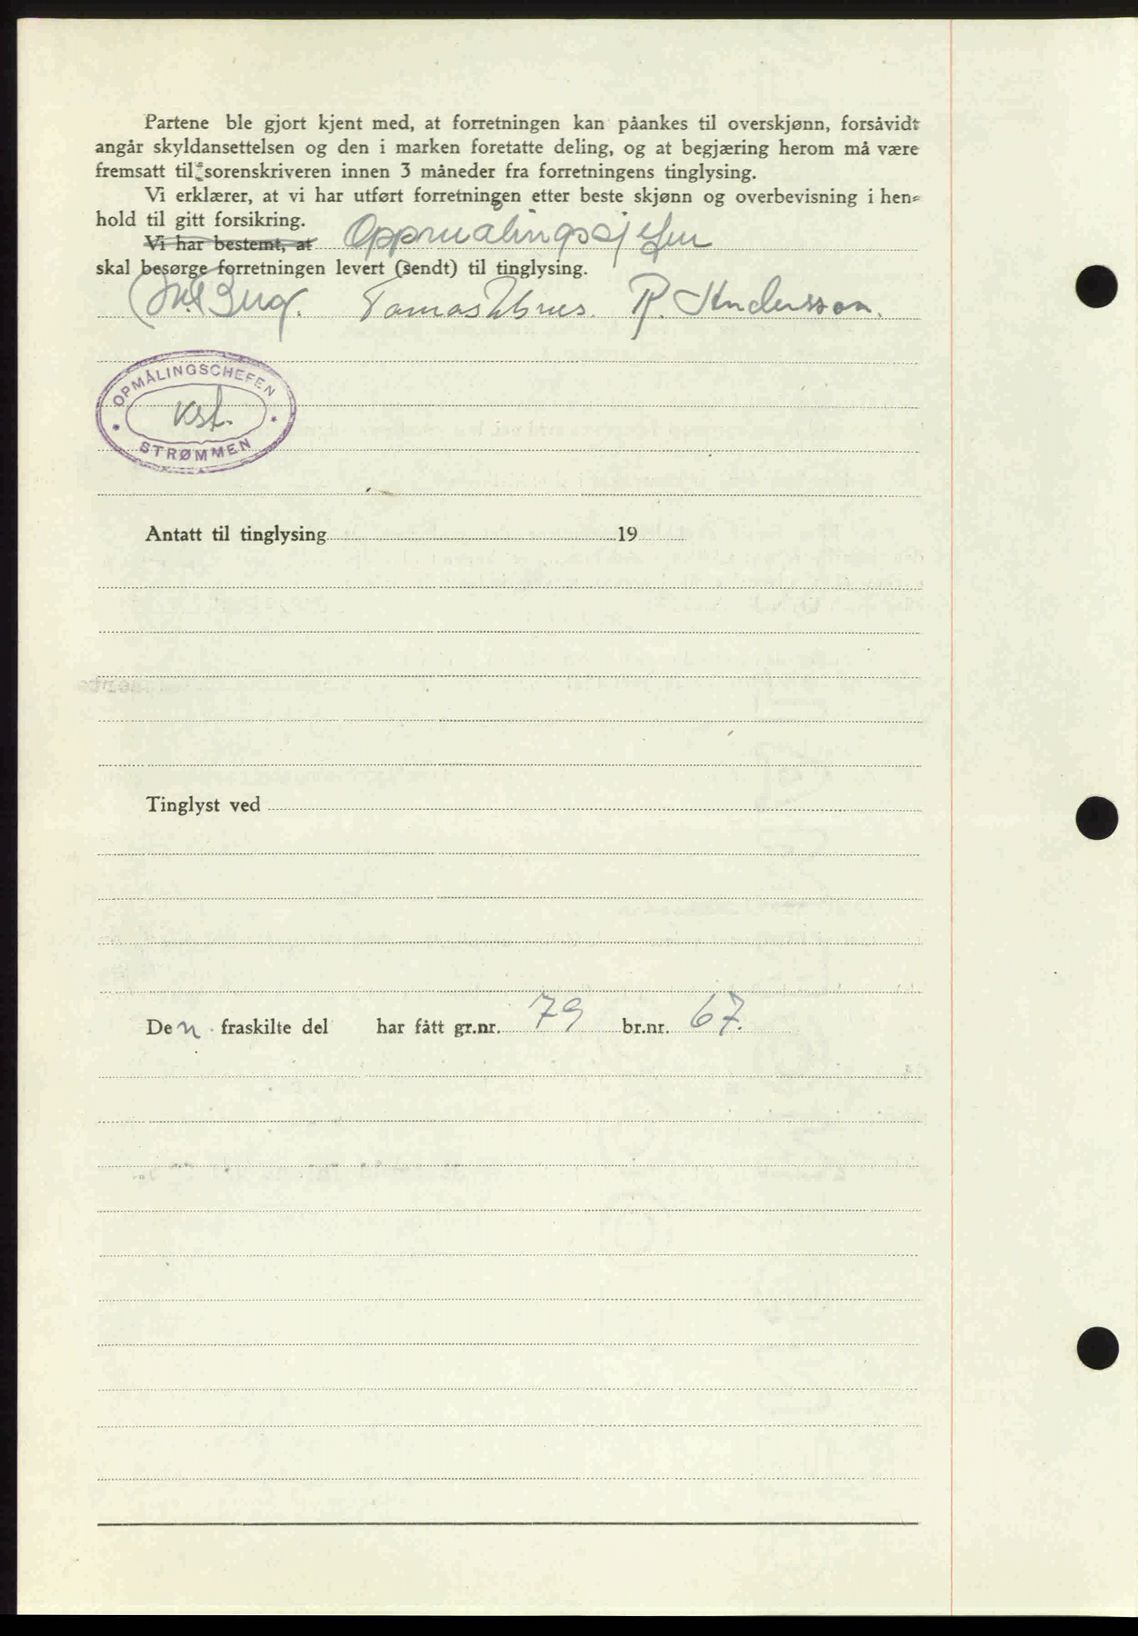 Partene ble gjort kjent med, at forretningen kan påankes til overskjønn, forsåvidt
angår skyldansettelsen og den i marken foretatte deling, og at begjæring herom må være
fremsatt til sorenskriveren innen 3 måneder fra forretningens tinglysing.
Vi erklærer, at vi har utført forretningen etter beste skjønn og overbevisning i hen-
hold til gitt forsikring.
Vi har bestemt, at Oppmålingssjefen
skal besørge forretningen levert (sendt) til tinglysing.
R. Andersson.
OPMÅLINGSCHEFEN
kst.
STRØMMEN
Antatt til tinglysing 19
Tinglyst ved
Den fraskilte del har fått gr.nr. 79 br.nr. 67.